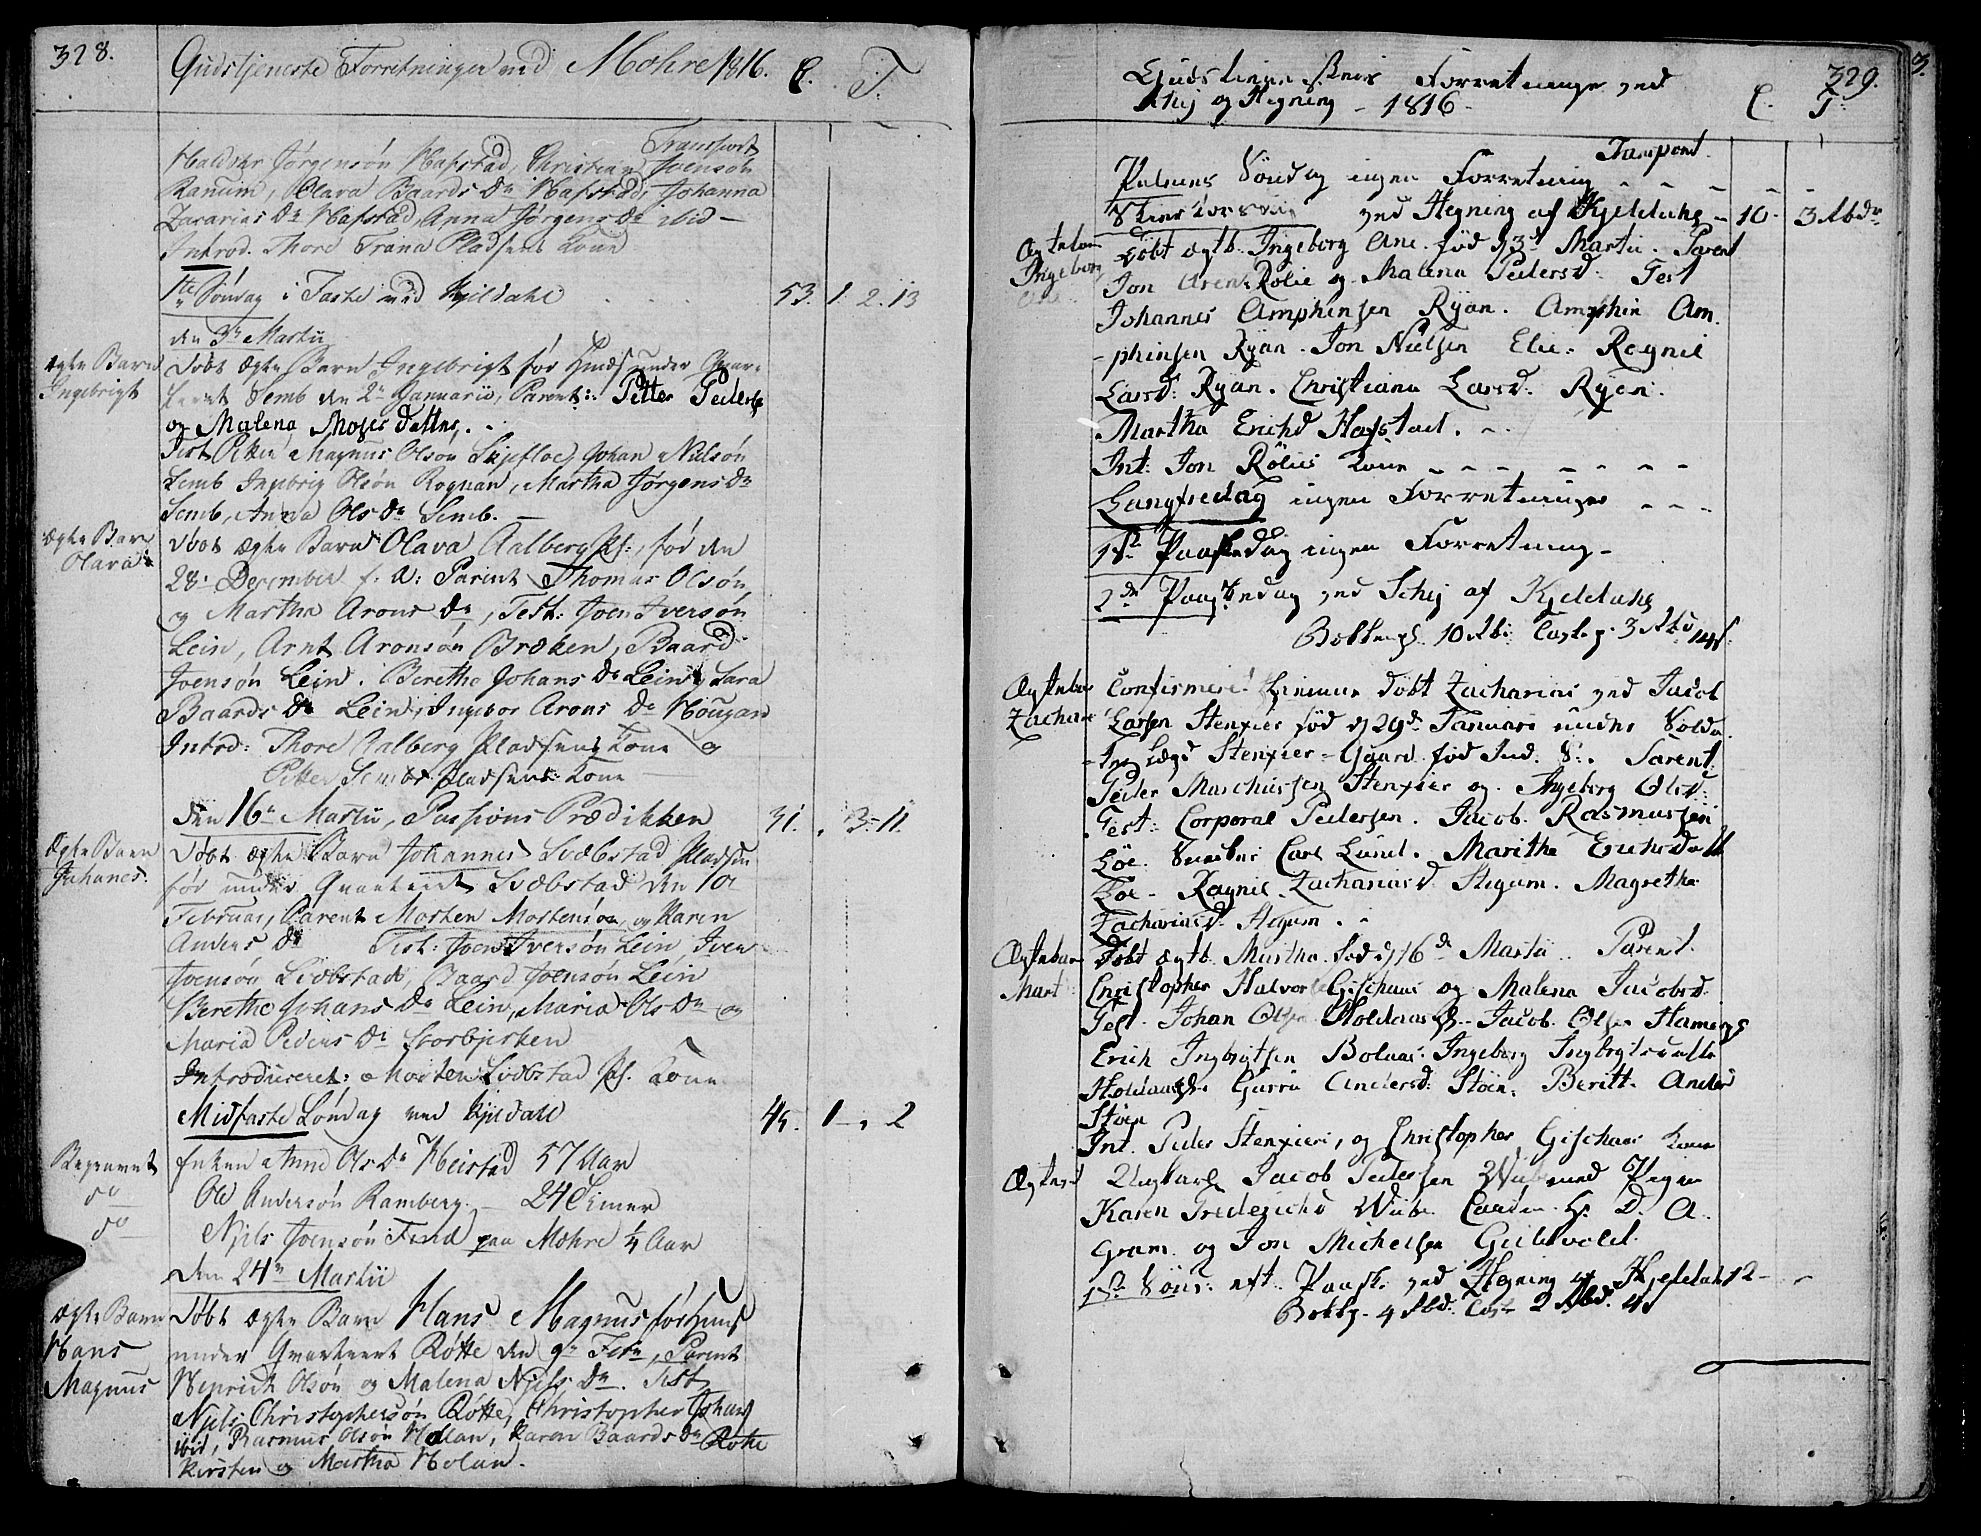 328.
Gudstjeneste Forretninger ved Mohre 1816. C. T.
Transport
Haldohr Jørgensøn Hafstad, Christian Joensøn
Ranum, Olava Baards Dr Hafstad, Johanna
Zacarias Dr Hafstad, Anna Jørgens Dr ibid —
Introd. Thore Trana Pladsens Kone
1te Søndag i Faste ved Kjildahl 53. 1. 2. 13
den 3die Martii
ægte Barn
Ingebrigt
Døbt ægte Barn Ingebrigt før under Qvar-
teret Semb den 2n Januarii, Parent: Petter Peders
og Malena Moses datter.
Test Peter Magnus Olsøn Skjefloe, Johan Nielsøn
Semb Ingebrig Olsøn Rognan, Martha Jørgens Dr
Semb, Anna Ols Dr Semb. —
ægte Barn
Olava
Døbt ægte Barn Olava Aalberg Pl:, før den
28. December f. A: Parent Thomas Olsøn
og Martha Arons Dr, Test: Joen Iversøn
Lein, Arnt Aronsøn Bræken, Baard
Joensøn Lein. Berethe Johans Dr Lein, Sara
Baards Dr Lein, Ingebor Arons Dr Hougan
Introd: Thore Aalberg Pladsens Kone og
Petter Semb Pladsens Kone —
den 16n Martii, Passions Prædikken 31. 3-11.
Ægte Barn
Johanes.
Døbt ægte Barn Johannes Svebstad Pladsen
før under Qvarteret Svæbstad den 10
Februar, Parent Morten Mortensøn, og Karen
Anders Dr Test: Joen Iversøn Lein, Iver
Joensøn Svebstad, Baard Joensøn Lein
Berethe Johans Dr Lein, Maria Ols Dr og
Maria Peders Dr Storbjrken
Introduceret: Morten Svebstad Pl. Kone
Midfaste Søndag ved Kjildahl 45. 1 - 2
Begravet
do
do
Enken Anne Ols Dr Heistad 57 Aar
Ole Andersøn Ramberg. — 24 Timer
Njels Joensøn Find paa Mohre 1/4 Aar
den 24n Martii
ægte Barn
Hans
Magnus
Døbt ægte Barn Hans Magnus før
under Qvarteret Røtte den 9n Febr, Parent
Henrich Olsøn og Malena Njels Dr. Test
Njels Christophersøn Røtte, Christopher Johans
ibid, Rasmus Olsøn Holan, Karen Baards Dr Røtte
Kirsten og Martha Holan.
329.
Gudstienestens Forretninge ved
Schej og Hegning - 1816 - C. T.
Transport.
Palmes Søndag ingen Forretning - - - - -
Skiertorsdag ved Hegning af Kjeldahl - 10 - 3 Rbdr
Ægtebarn
Ingeborg
Ane
Døbt ægtb. Ingeborg Ane fød d 3d Martii. Parent
Jon Arent. Rølie og Malena Pedersd: Test
Johannes Amphinsen Ryan. Amphin Am-
-phinsen Ryan. Jon Nielsen Elie. Ragnil
Larsd: Ryan. Christiana Larsd. Ryan.
Martha Erichd Hafstad.
Int: Jon Rølies Kone - - - - - - -
Langfredag ingen Forretninger - - -
1ste Paaskedag ingen Forretning -
2den Paaskedag ved Schej af Kjeldahl
10 Rb: 3 Rb
Ægtebar
Zacharie
Confirmeret hiemme døbt Zacharias ved Jacob
Larsen Stenxier fød d 29d Januari under
Lægd Stenxier-Gaard fød . Parent.
Peder Stenxier og Ingeborg Olsd:
Test: Corporal Pedersen. Jacob Rasmussen
Løe. Carl Lund. Marithe
Ragnil Zachariasd Stigum. Magrethe
Zachariasd Stigum.
Ægtebarn
Mart
Døbt ægtb. Martha fød d 16de Martii. Parent.
Christopher Halvors Gischaas og Malena Jacobsd.
Test. Johan Olsen Holdaas - Jacob Olsen
Erich Ingbrigtsen Bolaas. Ingeborg Ingbrigtsdatt
Holdaas. Gurru Andersd: Støen. Beritt Anders
Støen
Int. Peder Stenxiers, og Christopher Gischaas Kone
Ægtevi
Ungkarl Jacob Pedersen Wiibe med Pigen
Karen Frederichs Wiibe H. D. A.
Gram og Jon Michelsen
1ste Sønd: eft. Paaske ved Hegning og Kjeldahl 12 - -
4 Rbd. 2 Rbd.